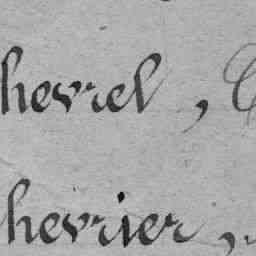 hevrel, C
hevrier,